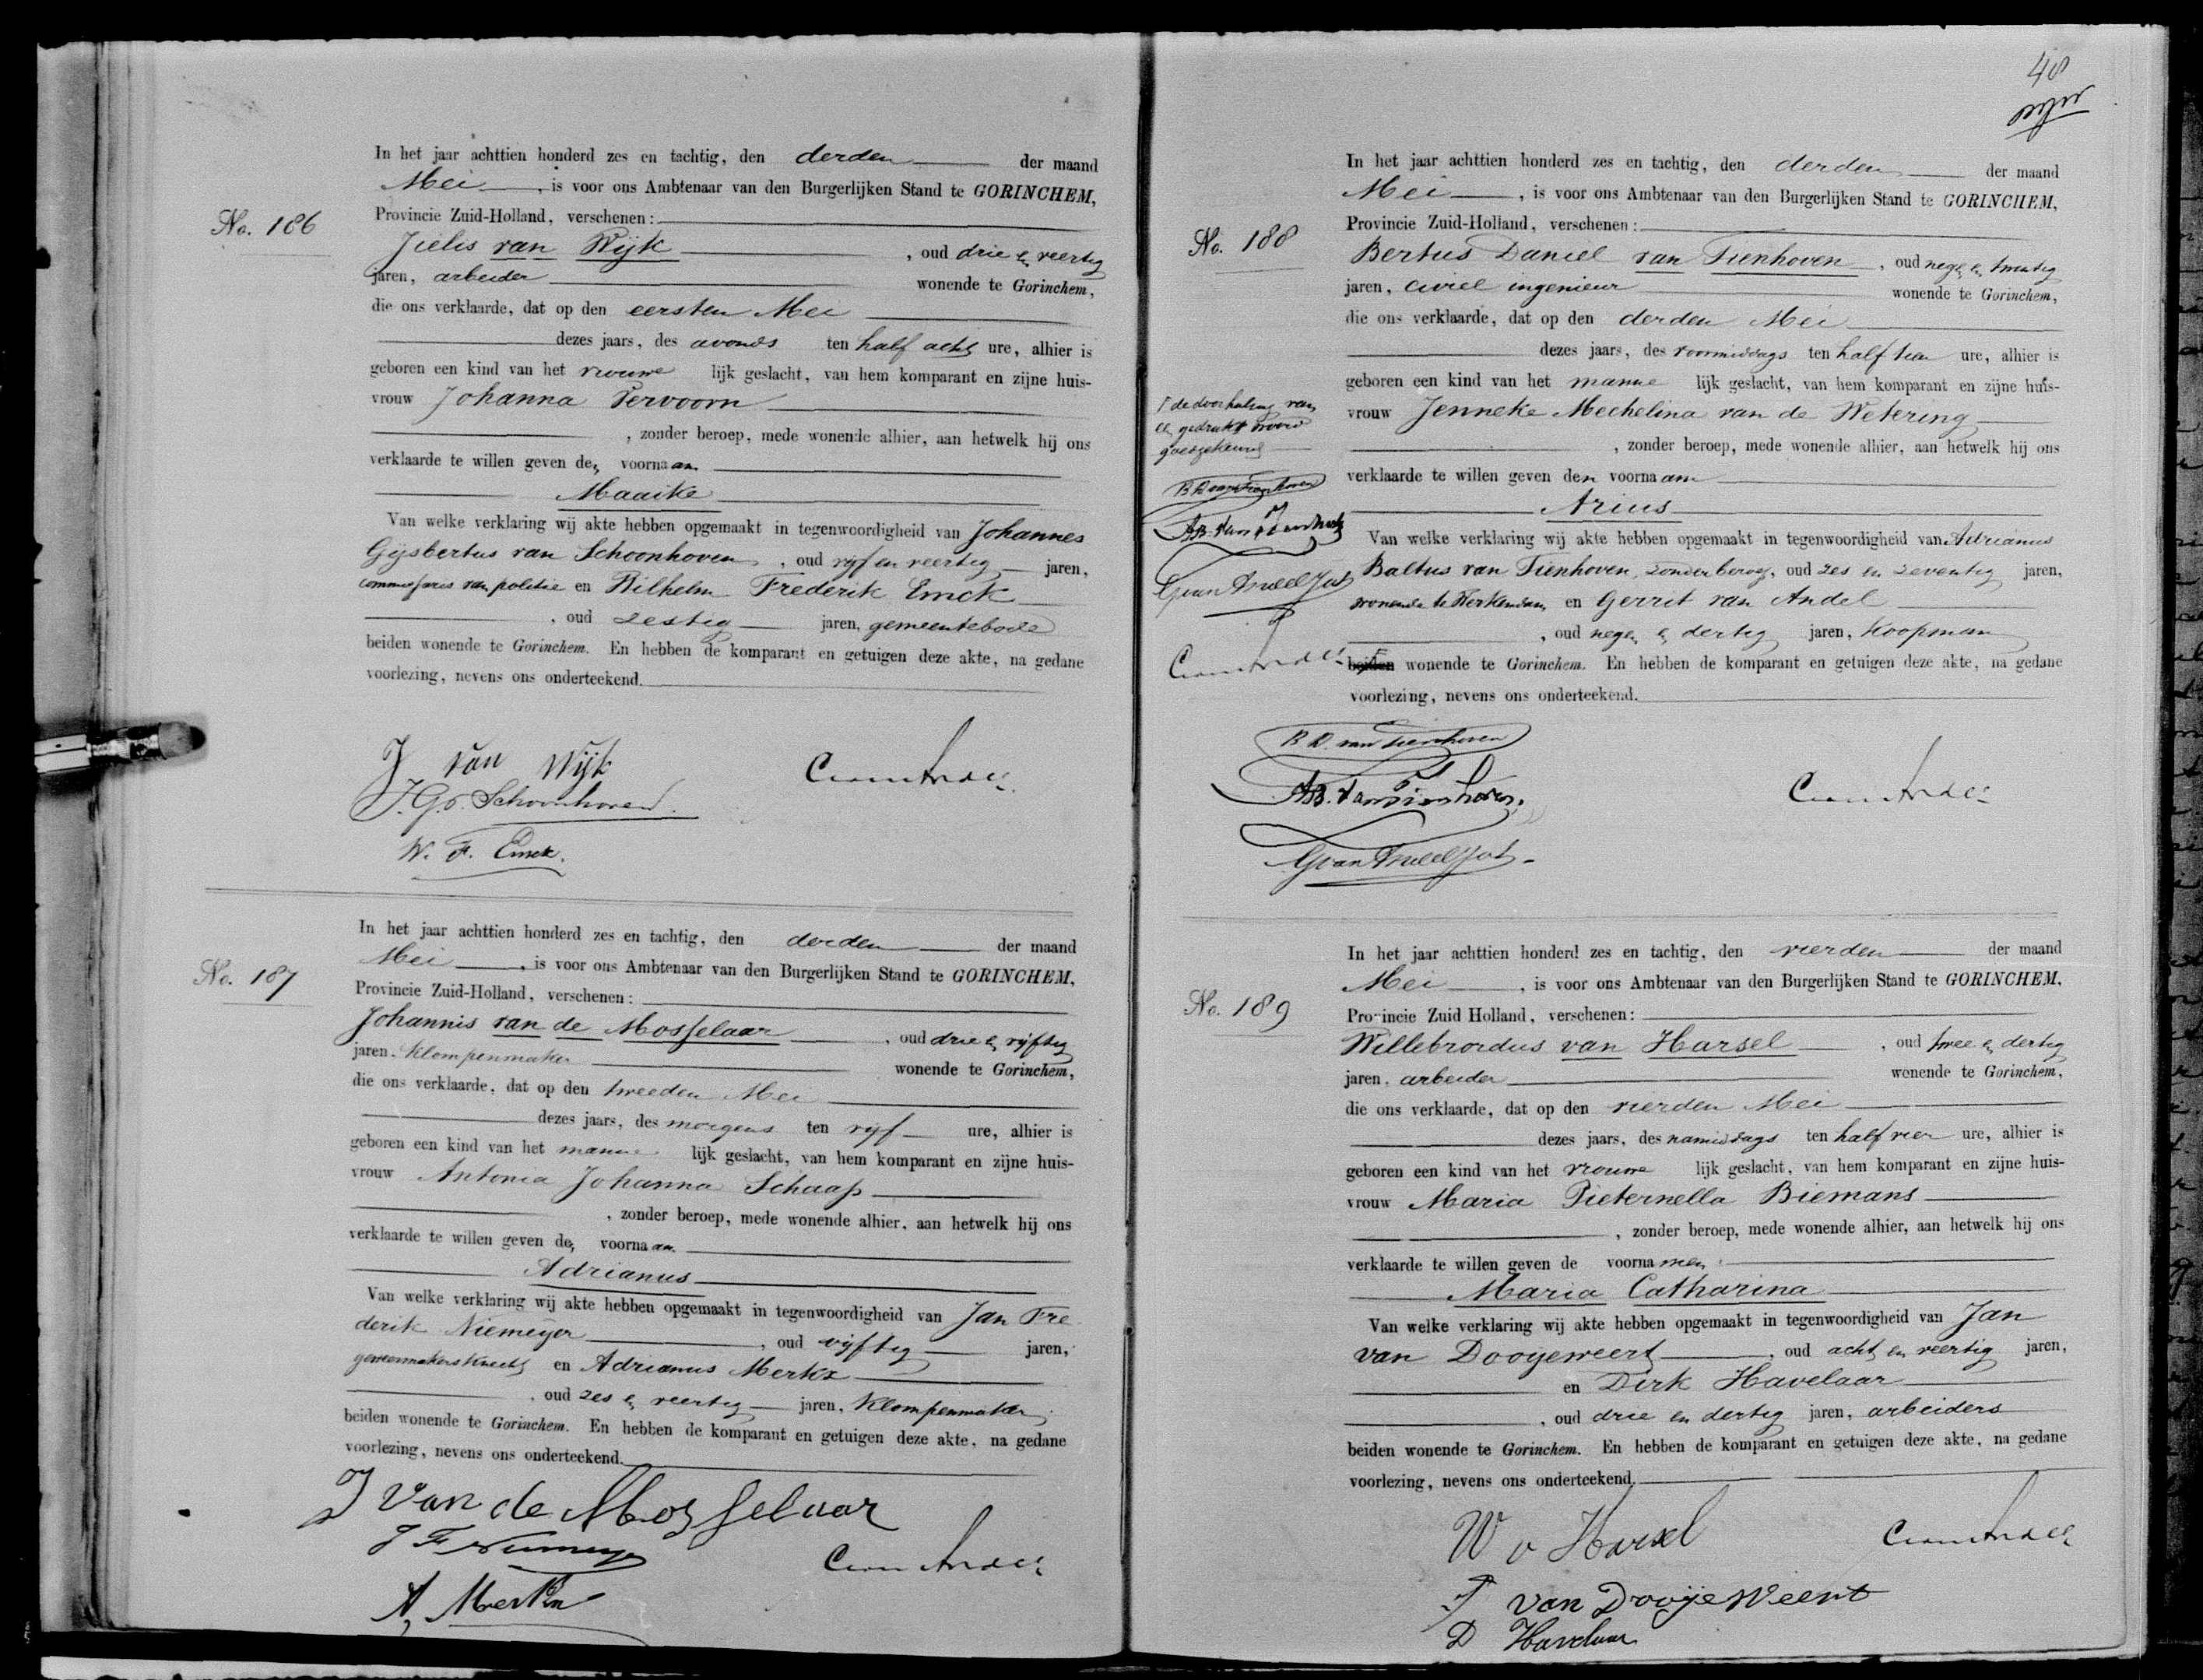 No. 186
In het jaar achttien honderd zes en tachtig, den derden der maand
Mei, is voor ons Ambtenaar van den Burgerlijken Stand te GORINCHEM,
Provincie Zuid-Holland, verschenen:
Jielis van Wijk, oud drie en veertig
jaren, arbeider wonende te Gorinchem,
die ons verklaarde, dat op den eersten Mei
dezes jaars, des avonds ten half acht ure, alhier is
geboren een kind van het vrouwe lijk geslacht, van hem komparant en zijne huis-
vrouw Johanna Vervoorn
, zonder beroep, mede wonende alhier, aan hetwelk hij ons
verklaarde te willen geven den voornaam
Maaike
Van welke verklaring wij akte hebben opgemaakt in tegenwoordigheid van Johannes
Gijsbertus van Schoonhoven, oud vijf en veertig jaren,
commissaris van politie en Wilhelm Frederik Emck
, oud zestig jaren, gemeentebode
beiden wonende te Gorinchem. En hebben de komparant en getuigen deze akte, na gedane
voorlezing, nevens ons onderteekend.
J van Wijk
J. G. v. Schoonhoven.
W. F. Emck.
No. 187
In het jaar achttien honderd zes en tachtig, den derden der maand
Mei, is voor ons Ambtenaar van den Burgerlijken Stand te GORINCHEM,
Provincie Zuid-Holland, verschenen:
Johannis van de Mosselaar, oud drie en vijftig
jaren, klompenmaker wonende te Gorinchem,
die ons verklaarde, dat op den tweeden Mei
dezes jaars, des morgens ten vijf ure, alhier is
geboren een kind van het manne lijk geslacht, van hem komparant en zijne huis-
vrouw Antonia Johanna Schaap
, zonder beroep, mede wonende alhier, aan hetwelk hij ons
verklaarde te willen geven den voornaam
Adrianus
Van welke verklaring wij akte hebben opgemaakt in tegenwoordigheid van Jan Fre
derik Niemeyer, oud vijftig jaren,
geweermakersknecht en Adrianus Merkx
, oud zes en veertig jaren, klompenmaker,
beiden wonende te Gorinchem. En hebben de komparant en getuigen deze akte, na gedane
voorlezing, nevens ons onderteekend.
J van de Mosselaar
J F Niemeyer
A, Merkx
48
No. 188
In het jaar achttien honderd zes en tachtig, den derden der maand
Mei, is voor ons Ambtenaar van den Burgerlijken Stand te GORINCHEM,
Provincie Zuid-Holland, verschenen:
Bertus Daniel van Tienhoven, oud negen en twintig
jaren, civiel ingenieur wonende te Gorinchem,
die ons verklaarde, dat op den derden Mei
dezes jaars, des voormiddags ten half tien ure, alhier is
geboren een kind van het manne lijk geslacht, van hem komparant en zijne huis-
vrouw Jenneke Mechelina van de Wetering
, zonder beroep, mede wonende alhier, aan hetwelk hij ons
verklaarde te willen geven den voornaam
Arius
Van welke verklaring wij akte hebben opgemaakt in tegenwoordigheid van Adrianus
Baltus van Tienhoven, zonder beroep, oud zes en zeventig jaren,
wonende te Werkendam, en Gerrit van Andel
, oud negen en dertig jaren, koopman
beiden wonende te Gorinchem. En hebben de komparant en getuigen deze akte, na gedane
voorlezing, nevens ons onderteekend.
de doorhaling van
een gedrukt woord
goedgekeurd
B D van Tienhoven
AB. van Tienhoven
G van Andel
B D. van Tienhoven
AB. van Tienhoven.
G van Andel
No. 189
In het jaar achttien honderd zes en tachtig, den vierden der maand
Mei, is voor ons Ambtenaar van den Burgerlijken Stand te GORINCHEM,
Provincie Zuid Holland, verschenen:
Willebrordus van Harsel, oud twee en dertig
jaren, arbeider wonende te Gorinchem,
die ons verklaarde, dat op den vierden Mei
dezes jaars, des namiddags ten half vier ure, alhier is
geboren een kind van het vrouwe lijk geslacht, van hem komparant en zijne huis-
vrouw Maria Pieternella Biemans
, zonder beroep, mede wonende alhier, aan hetwelk hij ons
verklaarde te willen geven de voornamen
Maria Catharina
Van welke verklaring wij akte hebben opgemaakt in tegenwoordigheid van Jan
van Dooyeweert, oud acht en veertig jaren,
en Dirk Havelaar
, oud drie en dertig jaren, arbeiders
beiden wonende te Gorinchem. En hebben de komparant en getuigen deze akte, na gedane
voorlezing, nevens ons onderteekend.
W v Harsel
J van DooijeWeert
D Havelaar